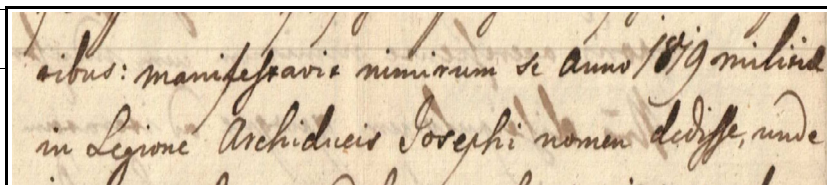 ribus: manifestavit nimirum se Anno 1819 militiæ
in Legione Archiducis Josephi nomen dedisse, unde